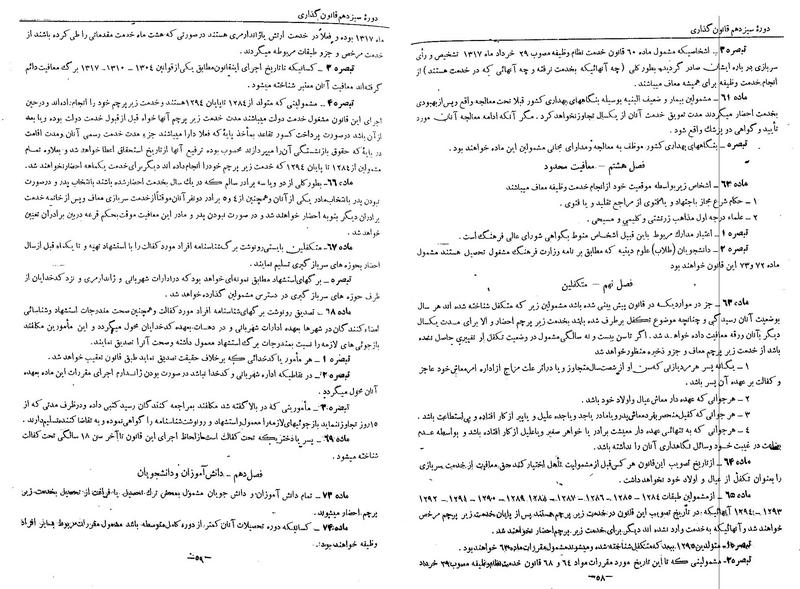 دورهٔ سیزدهم قانون گذاری
تبصره ۳ ـ اشخاصیکه مشمول ماده ۶۰ قانون خدمت نظام وظیفه مصوب ۲۹ خرداد ماه ۱۳۱۷ تشخیص و رأی
سربازی در باره ایشان صادر گردیده بطور کلی (چه آنهائیکه بخدمت نرفته و چه آنهائی که در خدمت هستند) از
انجام خدمت وظیفه برای همیشه معاف میباشند.
ماده ۶۱ ـ مشمولین بیمار و ضعیف البنیه بوسیله بنگاههای بهداری کشور قبلا تحت معالجه واقع و پس از بهبودی
بخدمت احضار میگردند مدت تعویق خدمت آنان از یکسال تجاوز نخواهد کرد. مگر آنکه ادامه معالجه آنان مورد
تأیید و گواهی پزشک واقع شود.
تبصره ـ بنگاههای بهداری کشور موظف به معالجه و مداوای مجانی مشمولین این ماده خواهند بود.
فصل هشتم ـ معافیت محدود
ماده ۶۲ ـ اشخاص زیر بواسطه موقعیت خود از انجام خدمت وظیفه معاف میباشند
۱ ـ حکام شرع مجاز باجتهاد و یا فتوی از مراجع تقلید و یا فتوی.
۲ ـ علماء درجه اول مذاهب زرتشتی و کلیمی و مسیحی.
تبصره ۱ ـ اعتبار مدارک مربوط باین قبیل اشخاص منوط بگواهی شورای عالی فرهنگ است.
تبصره ۲ ـ دانشجویان (طلاب) علوم دینیه که مطابق بر نامه وزارت فرهنگ مشغول تحصیل هستند مشمول
ماده ۷۲ و ۷۳ این قانون خواهند بود
فصل نهم ـ متکفلین
ماده ۶۳ ـ جز در مواردیکه در قانون پیش بینی شده باشد مشمولین زیر که متکفل شناخته شده اند هر سال
بوضعیت آنان رسیدگی و چنانچه موضوع تکفل برطرف شده باشد بخدمت زیر پرچم احضار و الا برای مدت یکسال
دیگر بآنان ورقه معافیت داده خواهد شد. اگر تا سن بیست و نه سالگی مشمول در وضعیت تکفل او تغییری حاصل نشده
باشد از خدمت زیر پرچم معاف و جزو ذخیره منظور خواهد شد
۱ ـ یگانه پسر هر مرد یا زنی که سن او از شصت سال متجاوز و یا در اثر علت مزاج از اداره امر معاش خود عاجز
و کفالت بر عهده آن پسر باشد.
۲ ـ هر جوانی که عهده دار معاش عیال و اولاد خود باشد.
۳ ـ هر جوانی که کفیل منحصر بفرد معاش پدر و یا مادر یا جد و یا جده علیل و یا پیر از کار افتاده و بی استطاعت باشد.
۴ ـ هر جوانی که به تنهائی عهده دار معیشت برادر یا خواهر صغیر و یا علیل از کار افتاده باشد و بواسطه عدم
بضاعت در غیبت خود وسائل نگاهداری آنان را نداشته باشد.
ماده ۶۴ ـ از تاریخ تصویب این قانون هر کس قبل از مشمولیت تأهل اختیار کند حق معافیت از خدمت سربازی
را بعنوان تکفل از عیال و اولاد خود نخواهد داشت.
ماده ۶۵ ـ از مشمولین طبقات ۱۲۸۴ ـ ۱۲۸۵ ـ ۱۲۸۶ ـ ۱۲۸۷ ـ ۱۲۸۸ ـ ۱۲۸۹ ـ ۱۲۹۰ ـ ۱۲۹۱ ـ ۱۲۹۲
۱۲۹۳ ـ ۱۲۹۴ آنهائیکه در تاریخ تصویب این قانون در خدمت زیر پرچم هستند پس از پایان خدمت زیر پرچم مرخص
خواهند شد و آنهائیکه به خدمت وارد نشده اند دیگر برای خدمت زیر پرچم احضار نخواهند شد.
تبصره ۱ ـ متولدین ۱۲۹۵ ببعد که متکفل شناخته شده و میشوند مشمول مقررات ماده ۶۳ خواهند بود.
تبصره ۲ ـ مشمولینی که تا این تاریخ مورد مقررات مواد ۶۴ و ۶۸ قانون خدمت نظام وظیفه مصوب ۲۹ خرداد
ـ ۵۸ ـ
دورهٔ سیزدهم قانون گذاری
ماه ۱۳۱۷ بوده و فعلا در خدمت ارتش یا ژاندارمری هستند در صورتی که هشت ماه خدمت مقدماتی را طی کرده باشند از
خدمت مرخص و جزو طبقات مربوطه میگردند.
تبصره ۳ ـ کسانیکه تا تاریخ اجرای این قانون مطابق یکی از قوانین ۱۳۰۴ ـ ۱۳۱۰ ـ ۱۳۱۷ برگ معافیت دائم
گرفته اند معافیت آنان معتبر شناخته میشود.
تبصره ۴ ـ مشمولینی که متولد از ۱۲۸۴ تا پایان ۱۲۹۴ هستند و خدمت زیر پرچم خود را انجام داده اند و در حین
اجرای این قانون مشغول خدمت دولت میباشند مدت خدمت زیر پرچم آنها خواه قبل از قبول خدمت دولت بوده و یا بعد
از آن باشد در صورت پرداخت کسور تقاعد بمأخذ پایه که فعلا دارا میباشند جزء مدت خدمت رسمی آنان و مدت اقامت
در پایه که حقوق بازنشستگی آن را میپردازند محسوب بوده ترفیع آنها از تاریخ استحقاق اعطا خواهد شد و بعلاوه تمام
مشمولین از ۱۲۸۴ تا پایان ۱۲۹۴ که خدمت زیر پرچم خود را انجام داده اند دیگر برای خدمت یکماهه احضار نخواهند شد.
ماده ۶۶ ـ بطور کلی از دو و یا سه برادر سالم که در یک سال بخدمت احضار شده باشند بانتخاب پدر و در صورت
نبودن پدر بانتخاب مادر یکی از آنان و همچنین از ۴ و ۵ برادر دو نفر آنان موقتاً از خدمت سربازی معاف و پس از خاتمه خدمت
برادران دیگر بنوبه احضار خواهند شد و در صورت نبودن پدر و مادر این معافیت موقت بحکم قرعه در بین برادران تعیین
خواهد شد.
ماده ۶۷ ـ متکفلین بایستی رونوشت برگ شناسنامه افراد مورد کفالت را با استشهاد تهیه و تا یکماه قبل از سال
احضار بحوزه های سرباز گیری تسلیم نمایند.
تبصره ـ برگهای استشهاد مطابق نمونه ای خواهد بود که در ادارات شهربانی و ژاندارمری و نزد کدخدایان از
طرف حوزه های سرباز گیری در دسترس مشمولین گذارده خواهد شد.
ماده ۶۸ ـ تصدیق رونوشت برگهای شناسنامه افراد مورد کفالت و همچنین صحت مندرجات استشهاد و شناسائی
امضاء کنندگان در شهرها بعهده ادارات شهربانی و در دهات بعهده کدخدایان محول میگردد و این مأمورین مکلفند
بازجوئی های لازمه را نسبت بمندرجات برگ استشهاد معمول داشته و صحت آنرا تصدیق نمایند.
تبصره ۱ ـ هر مأمور یا کدخدائی که بر خلاف حقیقت تصدیق نماید طبق قانون تعقیب خواهد شد.
تبصره ۲ ـ در نقاطیکه اداره شهربانی و کدخدا نباشد در صورت بودن ژاندارم اجرای مقررات این ماده بعهده
آنان محول میگردد.
تبصره ۳ ـ مأمورینی که در بالا گفته شد مکلفند بمراجعه کنندگان رسید کتبی داده و در ظرف مدتی که از
۱۵ روز تجاوز ننماید بازجوئیهای لازمه را معمول و استشهاد و رونوشت شناسنامه را گواهی نموده و به تقاضا کننده تسلیم دارند.
ماده ۶۹ ـ پسر یا دختری که تحت کفالت است از لحاظ اجرای این قانون تا آخر سن ۱۸ سالگی تحت کفالت
شناخته میشود.
فصل دهم ـ دانش آموزان و دانشجویان
ماده ۷۲ ـ تمام دانش آموزان و دانش جویان مشمول بمحض ترک تحصیل یا فراغت از تحصیل بخدمت زیر
پرچم احضار میشوند.
ماده ۷۳ ـ کسانیکه دوره تحصیلات آنان کمتر از دوره کامل متوسطه باشد مشمول مقررات مربوط بسایر افراد
وظیفه خواهند بود.
ـ ۵۹ ـ